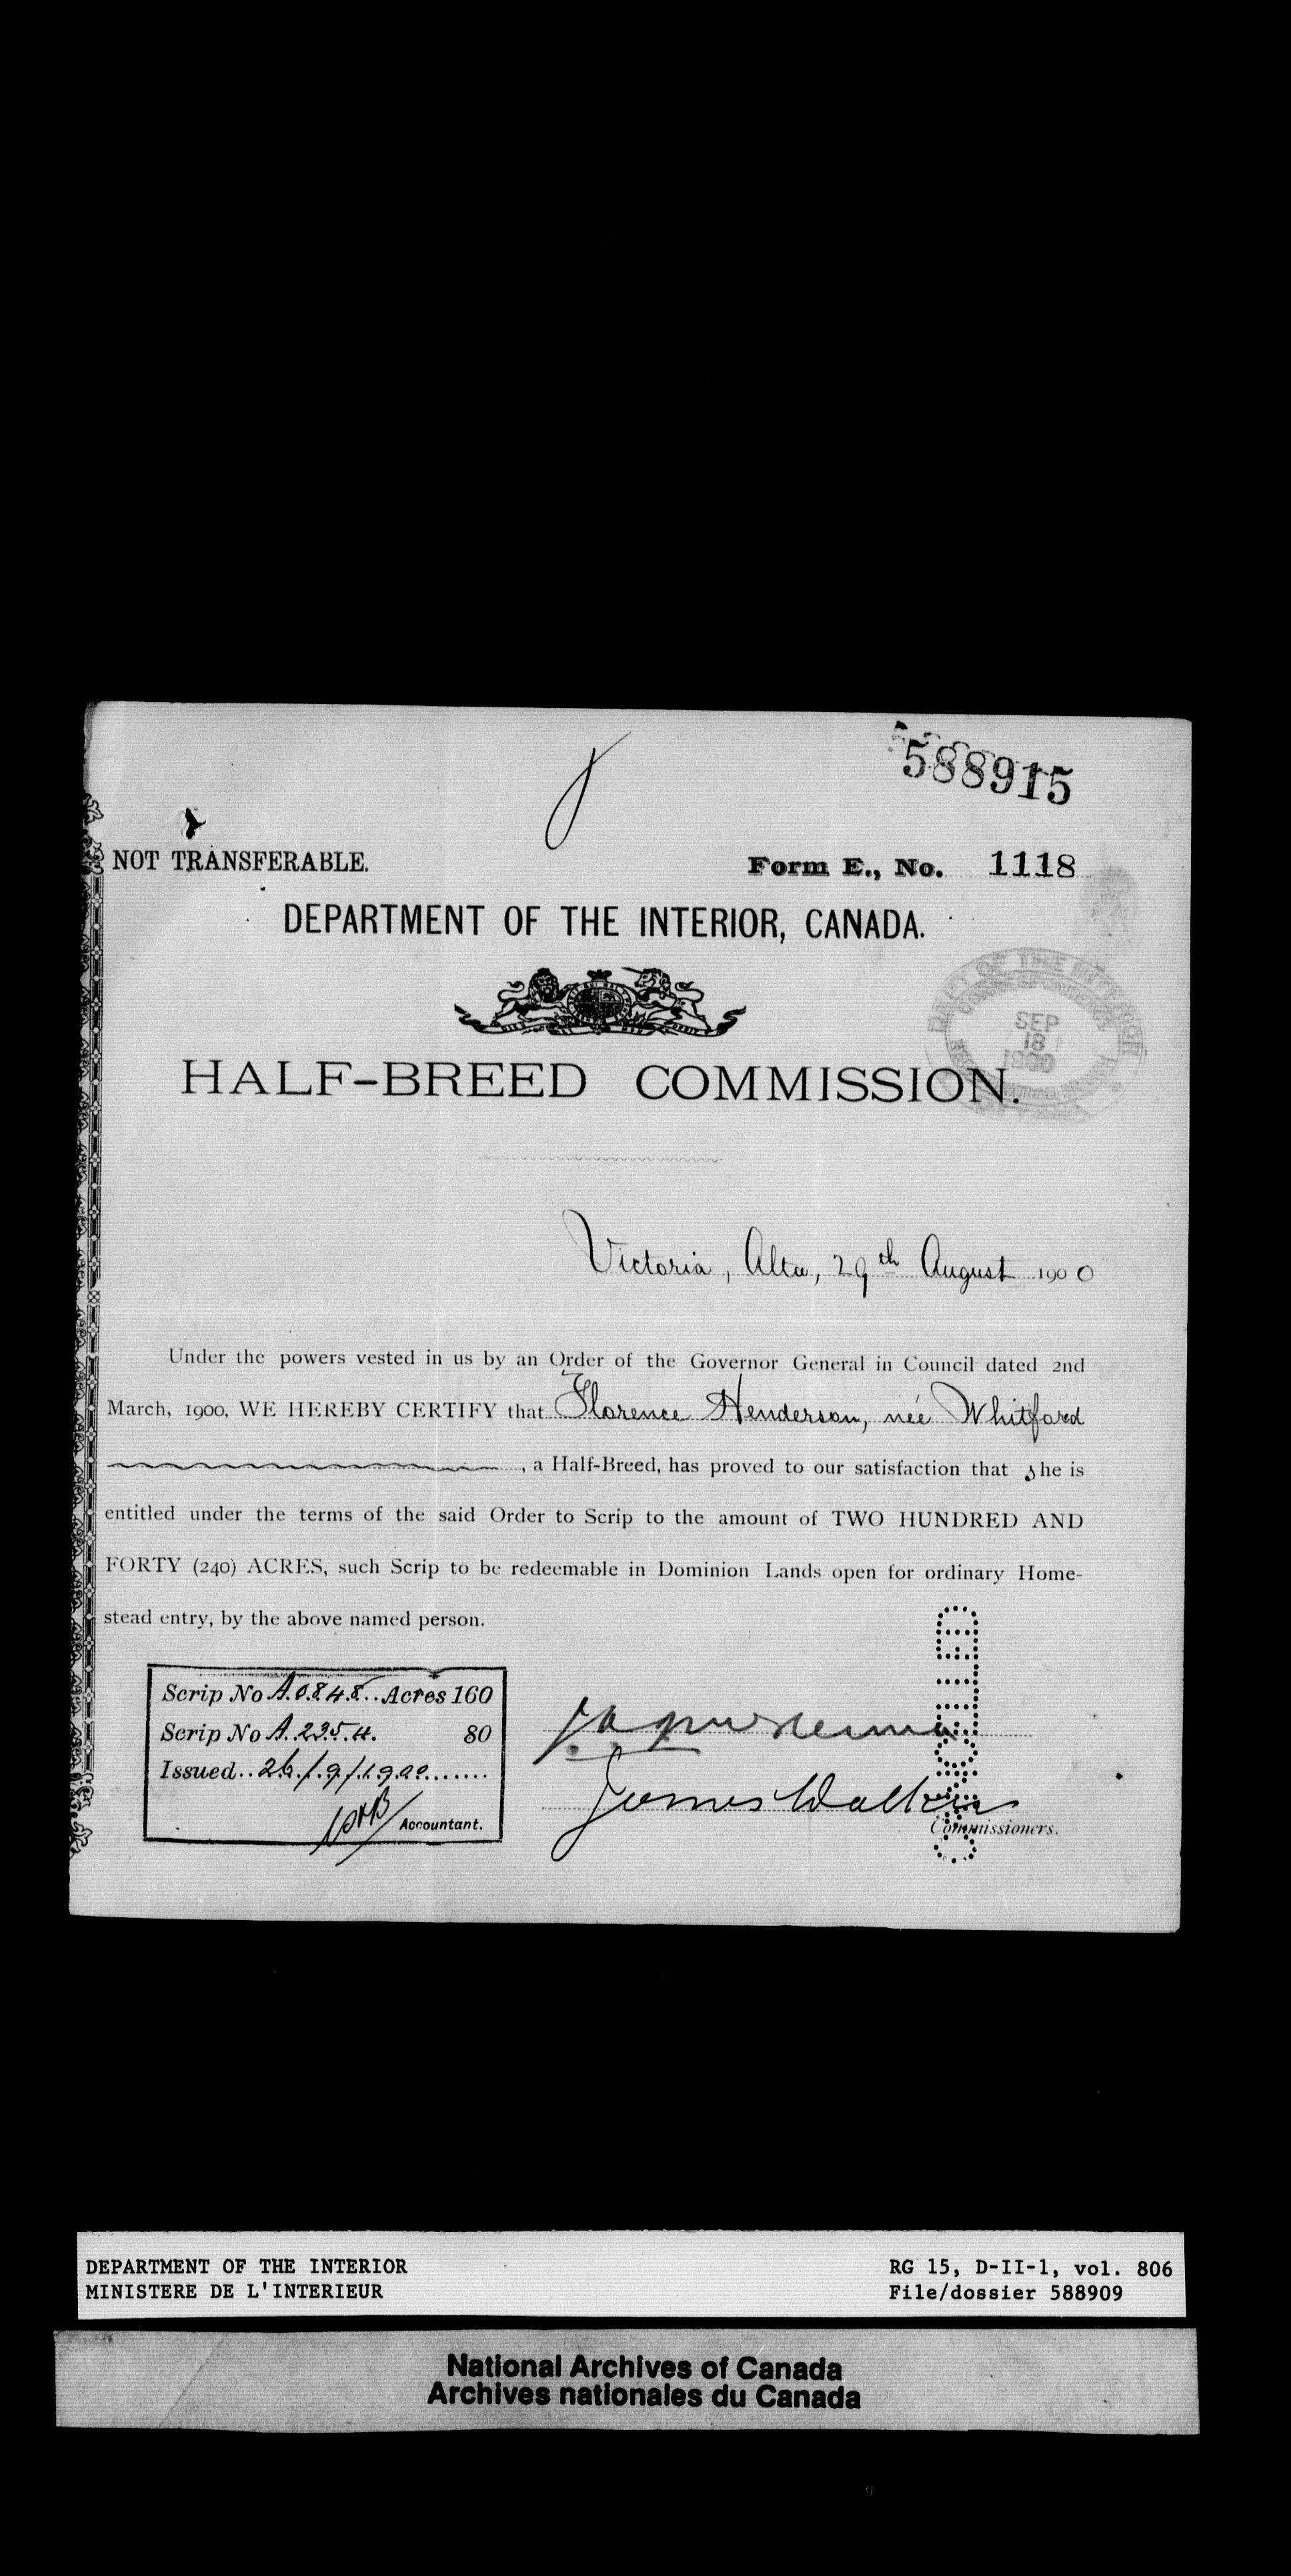 588915
NOT TRANSFERABLE.
Form E., No. 1118
DEPARTMENT OF THE INTERIOR, CANADA.
SEP
18
1900
HALF-BREED COMMISSION.
Victoria, Alta, 29th August 1900
Under the powers vested in us by an Order of the Governor General in Council dated 2nd
March, 1900, WE HEREBY CERTIFY that Florence Henderson, née Whitford
, a Half-Breed, has proved to our satisfaction that she is
entitled under the terms of the said Order to Scrip to the amount of TWO HUNDRED AND
FORTY (240) ACRES, such Scrip to be redeemable in Dominion Lands open for ordinary Home-
stead entry, by the above named person.
Scrip No A.0848.. Acres 160
Scrip No A.2354. 80
Issued..26/9/1900.......
Accountant.
James Walker
Commissioners.
DEPARTMENT OF THE INTERIOR
MINISTERE DE L'INTERIEUR
RG 15, D-II-1, vol. 806
File/dossier 588909
National Archives of Canada
Archives nationales du Canada